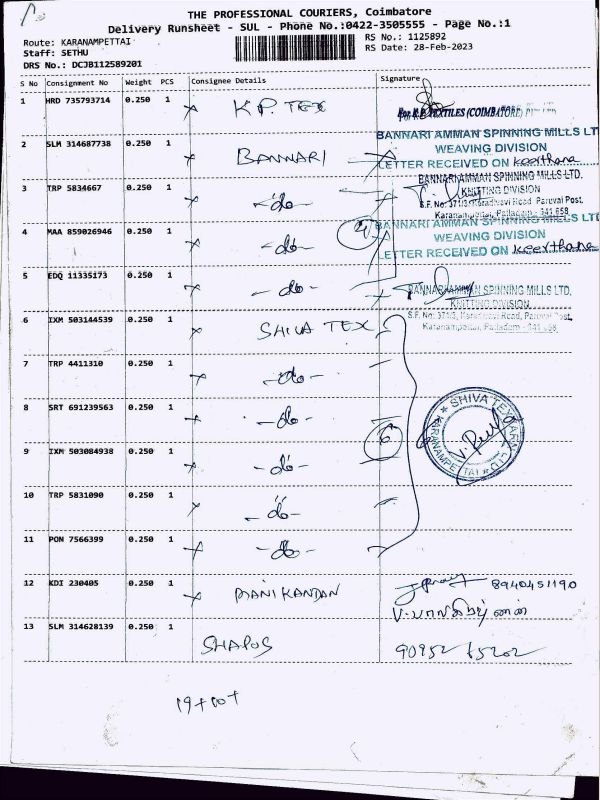 THE PROFESSIONAL COURIERS, Coimbatore
Delivery Runsheet - SUL - Phone No.:0422-3505555 - Page No.:1
Route: KARANAMPETTAI
Staff: SETHU
DRS No.: DCJB112589201
RS No.: 1125892
RS Date: 28-Feb-2023
S No Consignment No Weight PCS Consignee Details Signature
1 HRD 735793714 0.250 1 K.P. TEX
For K.P. TEXTILES (COIMBATORE)
2 SLM 314687738 0.250 1 BANNARI
BANNARI AMMAN SPINNING MILLS LT
WEAVING DIVISION
LETTER RECEIVED ON Keerthana
3 TRP 5834667 0.250 1 -do-
BANNARI AMMAN SPINNING MILLS LTD.
KNITTING DIVISION
S.F. No: 371/3, Karadivavi Road, Paruvai Post,
Karanampettai, Palladam - 641 658
4 MAA 859026946 0.250 1 -do- 4
BANNARI AMMAN SPINNING MILLS LT
WEAVING DIVISION
LETTER RECEIVED ON Keerthana
5 EDQ 11335173 0.250 1 -do-
BANNARI AMMAN SPINNING MILLS LTD,
KNITTING DIVISION
S.F. No: 371/3, Karadivavi Road, Paruvai Post,
Karanampettai, Palladam - 641 658
6 IXM 503144539 0.250 1 SHIVA TEX
7 TRP 4411310 0.250 1 -do-
8 SRT 691239563 0.250 1 -do- 6
SHIVA TEX
KARANAMPETTAI
9 IXM 503084938 0.250 1 -do-
10 TRP 5831090 0.250 1 -do-
11 PON 7566399 0.250 1 -do-
12 KDI 230405 0.250 1 MANIKANDAN 8940451190
13 SLM 314628139 0.250 1